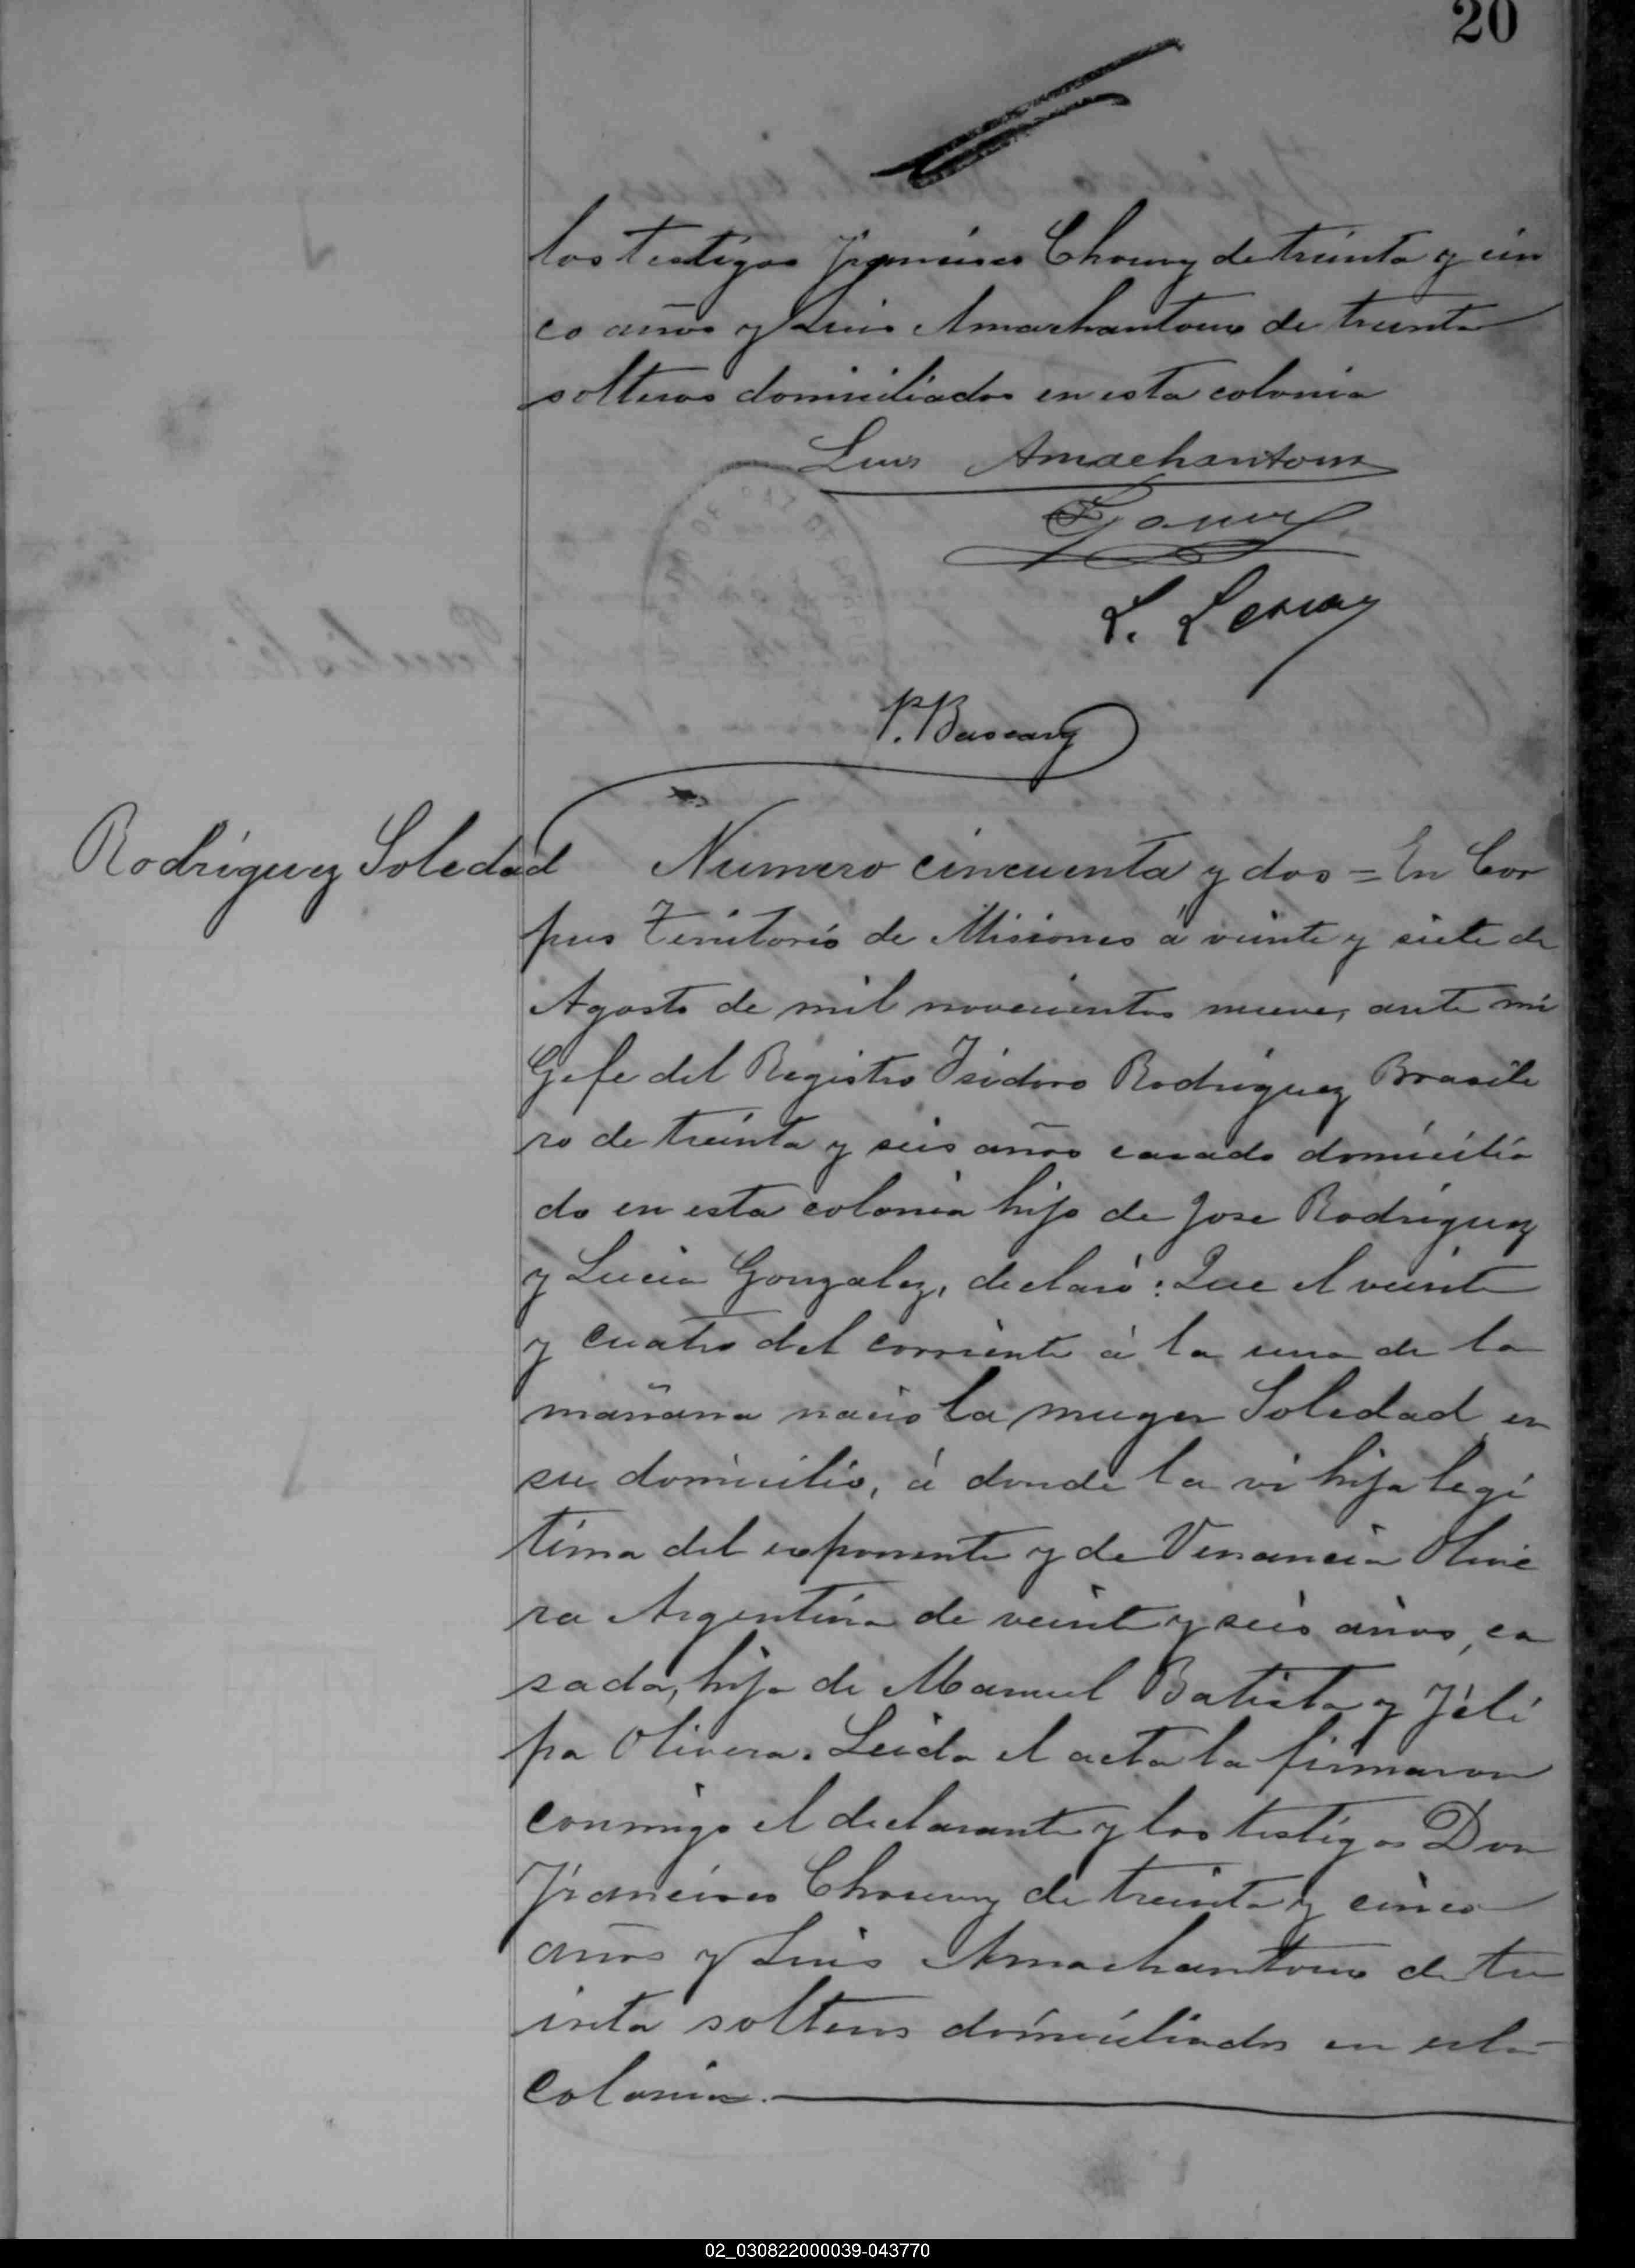 20
los testigos Francisco Chouvy de treinta y cin
co años y Luis Amachantoux de treinta
solteros domiciliados en esta colonia
Luis Amachantoux
L.
P. Bascary
Rodriguez Soledad
Numero cincuenta y dos = En Cor
pus Territorio de Misiones á veinte y siete de
Agosto de mil novecientos nueve, ante mi
Gefe del Registro Isidoro Rodriguez Brasile
ro de treinta y seis años casado domicilia
do en esta colonia hijo de Jose Rodriguez
y Lucia Gonzalez, declaró: Que el veinte
y cuatro del corriente á la una de la
mañana nació la muger Soledad en
su domicilio, á donde la vi hija legi
tima del exponente y de Venancia Olive
ra Argentina de veinte y seis años, ca
sada, hija de Manuel Batista y Féli
pa Olivera. Leida el acta la firmaron
conmigo el declarante y los testigos Don
Francisco Chouvy de treinta y cinco
años y Luis Amachantoux de tre
inta solteros domiciliados en esta
colonia.
02_030822000039-043770